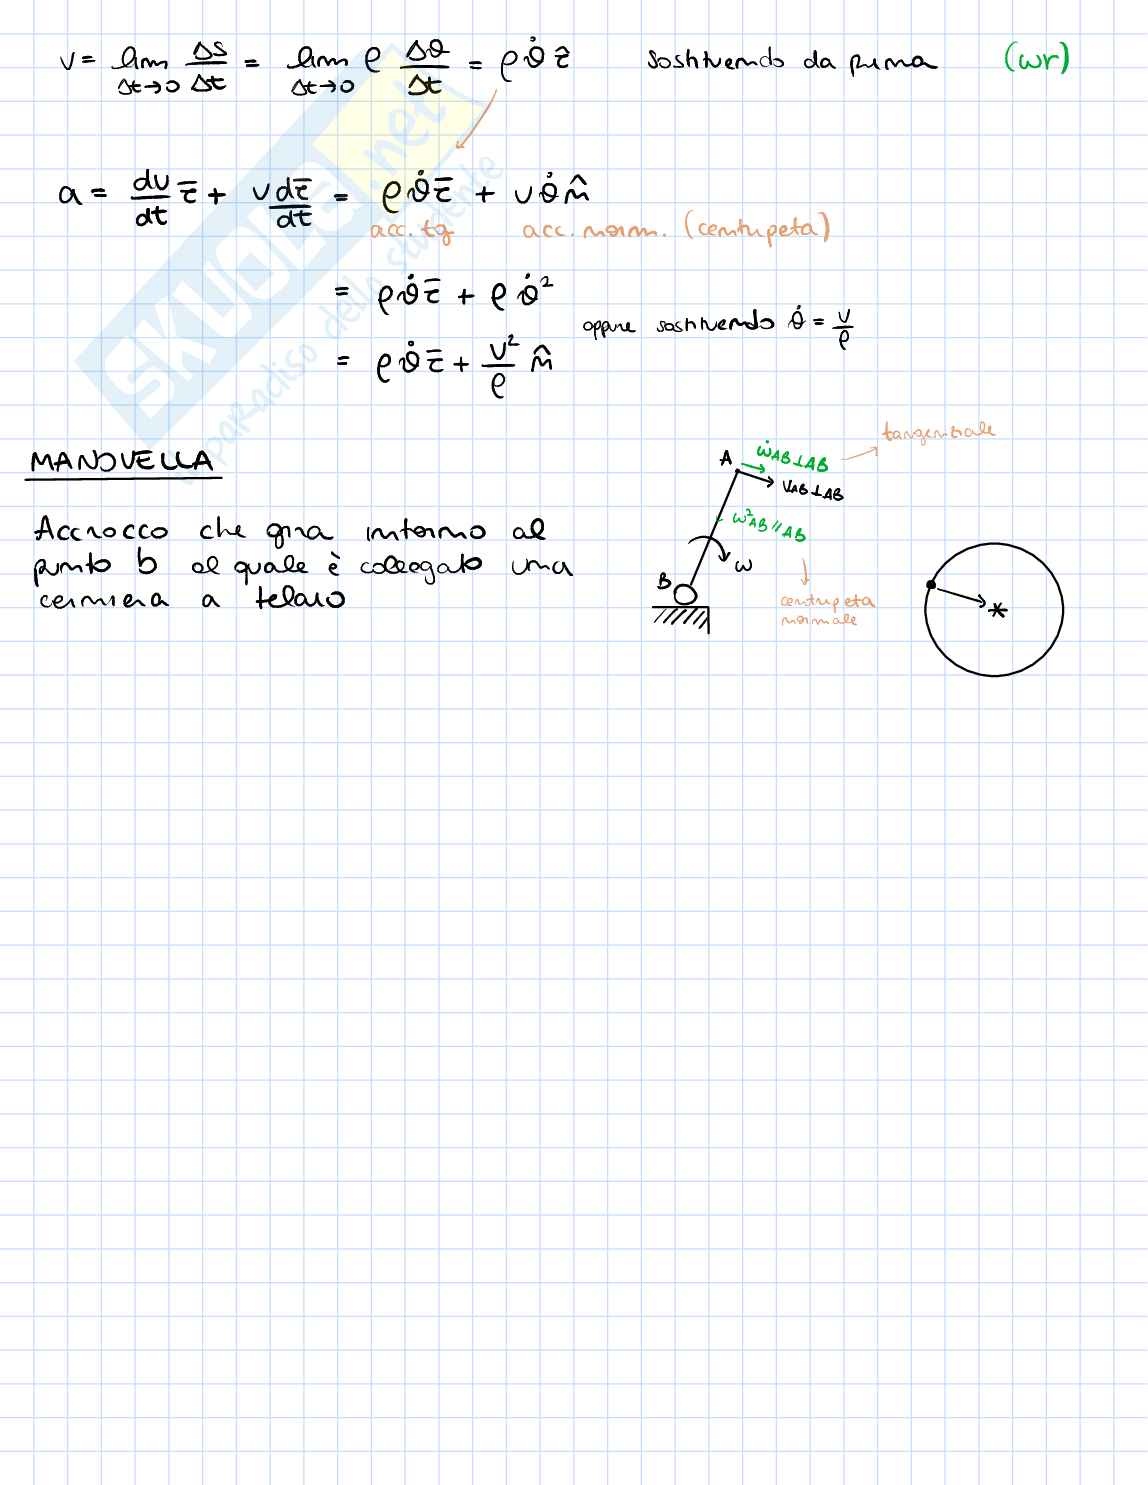 v = lim Δt→0 Δs/Δt = lim Δt→0 ρ Δθ/Δt = ρ θ̇ τ̂ sostituendo da prima (ωr)
a = dv/dt τ̄ + v dτ̄/dt = ρ θ̇ τ̄ + v θ̇ n̂
acc. tg acc. norm. (centripeta)
= ρ θ̇ τ̄ + ρ θ̇²
oppure sostituendo θ̇ = v/ρ
= ρ θ̇ τ̄ + v²/ρ n̂
MANOVELLA
Accrocco che gira intorno al
punto b al quale è collegato una
cerniera a telaio
A
ω̇AB⊥AB
tangenziale
VAB⊥AB
ω²AB//AB
B
ω
centripeta
normale
SKUOLA.net
il paradiso dello studente